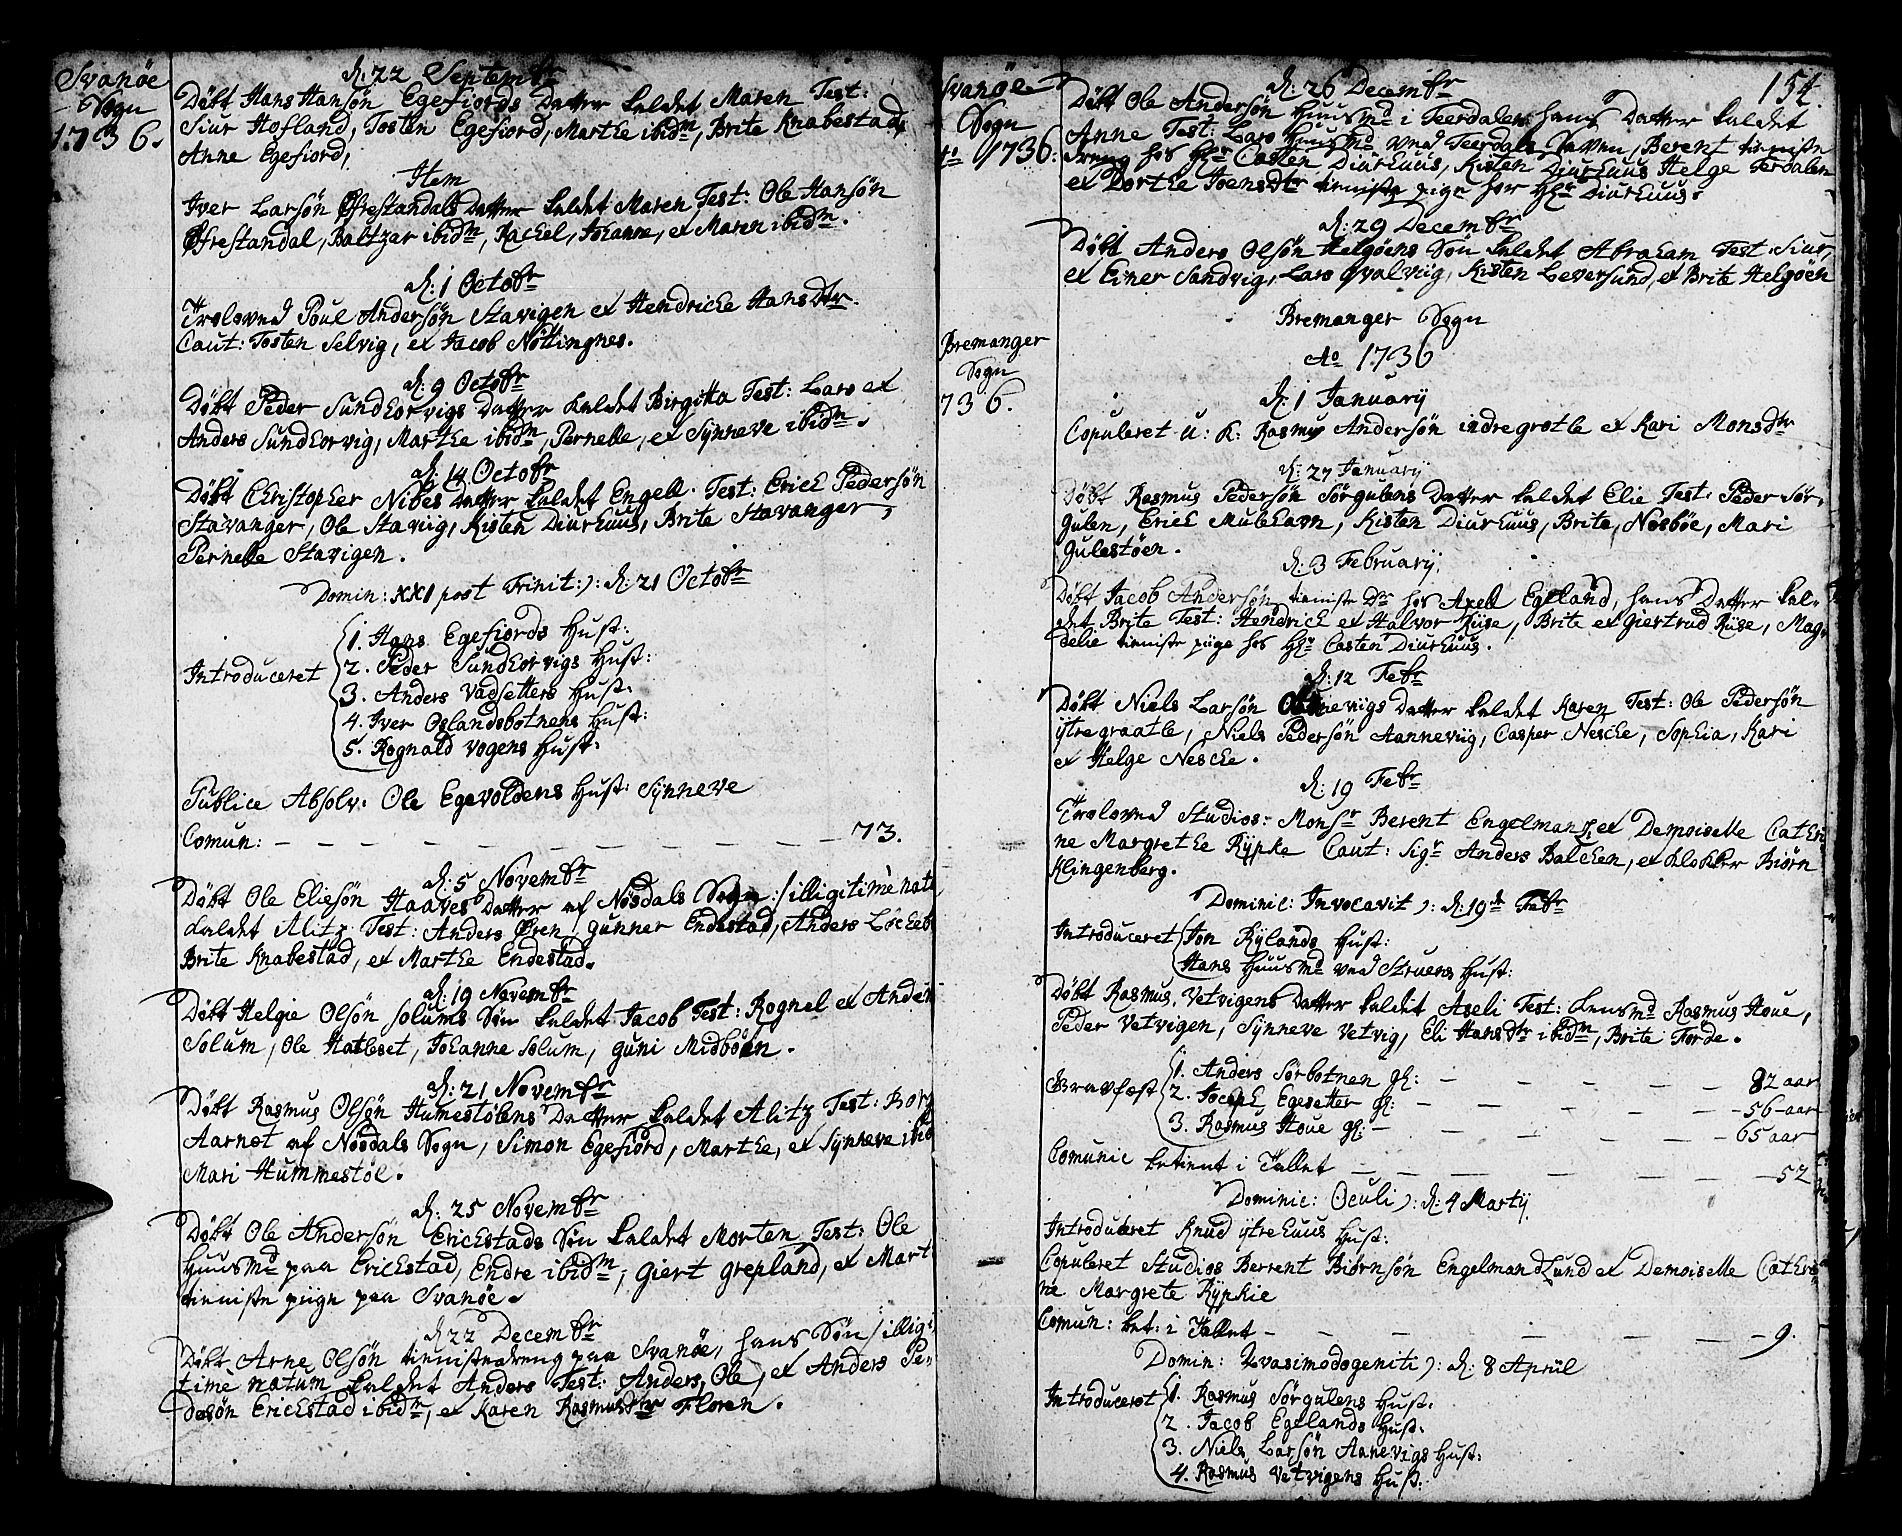 Svanöe
Sogn
1736.
d: 22 Septembr
Döbt Hans Hansön Egefiords Datter kaldet Maren Test:
Siur Hofland, Tosten Egefiord, Marthe ibidm, Brite Knabestad,
Anne Egefiord,
Item
Iver Larsön Öfrestandals Datter kaldet Maren Test: Ole Hansön
Öfrestandal, Baltzar ibidm, Rachel, Johanne, et Maren ibidm.
d: 1 Octobr
Troloved Poul Andersön Stavigen et Hendriche Hans Dtr.
Caut: Tosten Selvig, et Jacob Nöttingnes.
d: 9 Octobr
Döbt Peder Sundhorvigs Datter kaldet Birgitta Test: Lars et
Anders Sundhorvig, Marthe ibidm, Pernelle, et Synneve ibidm.
d: 14 Octobr
Döbt Christopher Nibes Datter kaldet Engell. Test: Erich Pedersön
Stavanger, Ole Staviig, Kisten Diurhuus, Brite Stavanger,
Pernelle Stavigen.
Domin: XXI post Trinit: ): d: 21 Octobr
Introduceret
1. Hans Egefiords Hust:
2. Peder Sundhorvigs Hust:
3. Anders Vadsetters Hust:
4. Iver Oslandsbotnens Hust:
5. Rognald Vogens Hust:
Publice Absolv. Ole Egevoldens Hust: Synneve
Comun: — — — — — — — — — — — — 73.
d: 5 Novembr
Döbt Ole Eliesön Haaves Datter af Nösdals Sogn :/ illigitimè nata
kaldet Alitz Test: Anders Ören, gunner Endestad, Anders Löcheb
Brite Knabestad, et Marthe Endestad.
d: 19 Novembr
Döbt Helgie Olsön Solums Sön kaldet Jacob Test: Rognel et Anders
Solum, Ole Hatleset, Johanne Solum, guni Midböen.
d: 21 Novembr
Döbt Rasmus Olsön Humestölens Datter kaldet Alitz Test:
Aarnæt af Nösdals Sogn, Simon Egefiord, Marthe, et Synneve ibid
Mari Hummestöl.
d: 25 Novembr
Döbt Ole Andersön Erichstads Sön kaldet Morten Test: Ole
Huusmd paa Erichstad, Endre ibidm, Giert grepland, et Mart
tieniste piige paa Svanöe.
d: 22 Decembr
Döbt Arne Olsön tienistedreng paa Svanöe, hans Sön / illigi-
timè natum kaldet Anders Test: Anders, Ole, et Anders Pe-
dersön Erichstad ibidm, et Karen Rasmusdtr Floren.
Svanöe
Sogn
Ao 1736.
154.
d: 26 Decembr
Döbt Ole Andersön Huusmd i Teerdalen hans Datter kaldet
Anne Test: Lars Huusmd ved Teerdals Vatten, Berent tieniste
dreng hos Hr Casten Diurhuus, Kisten Diurhuus Helge Terdalen
et Dorthe Joensdtr tieniste pige hos Hr Diurhuus.
d: 29 Decembr
Döbt Anders Olsön Helgöens Sön kaldet Abraham Test: Siur,
et Einer Sandvig, Lars qvalviig, Kisten Leversund, et Brite Helgöen
Bremanger
Sogn
736.
Bremanger Sogn
Ao 1736
d: 1 January
Copuleret u: k: Rasmus Andersön indregrotle et Kari Monsdtr
d: 27 January
Döbt Rasmus Pedersön Sörgulens Datter kaldet Elie Test: Peder Sör-
gulen, Erich Mulehavn, Kisten Diurhuus, Brite, Nosböe, Mari
Gulestöen.
d: 3 February
Döbt Jacob Andersön tieniste Dr hos Axell Egeland, hans Datter kal-
det Brite Test: Hendrich et Halvor Riise, Brite et Giertrud Riise, Mag-
delie tieniste piige hos Hr Casten Diurhuus.
d: 12 Febr
Döbt Niels Larsön Datter kaldet Karen Test: Ole Pedersön
ytregraatle, Niels Pedersön Aanneviig, Casper Nesche, Sophia, Kari
et Helge Nesche.
d: 19 Febr
Troloved Studios: Monsr Berent Engelmans et Demoiselle Cathri-
ne Margrethe Rÿpke Caut: Sigr Anders Balchen, et Klokker Biørn
Klingenberg.
Dominic: Invocavit ): d: 19de Febr
Introduceret
Jon Rÿlands Hust:
Hans Huusmd ved Struens Hust:
Döbt Rasmus Vetvigens Datter kaldet Aseli Test: Lensmd Rasmus Houe,
Peder Vetvigen, Synneve Vetvig, Eli Hansdtr ibidm, Brite Förde.
Gravfæst
1. Anders Sörbotnen gl: — — — — — — 82 aar
2. Joseph Egesetter gl: — — — — — — 56 aar
3. Rasmus Houe gl: — — — — — — 65 aar
Comunic betient i Tallet — — — — — — — 52
Dominic: Oculi ): d: 4 Martÿ
Introduceret Knud ytrehuus Hust:
Copuleret Studios Berrent Biørnsön Engelmand Lund et Demoiselle Cathri
ne Margrete Rÿpkie
Comun: bet: i Tallet — — — — — — — — 9.
Domin: Qvasimodogeniti ): d: 8 Apriil
Introduceret
1. Rasmus Sörgulens Hust.
2. Jacob Egelands Hust:
3. Niels Larsön Aanevigs Hust:
4. Rasmus Vetvigens Hust: